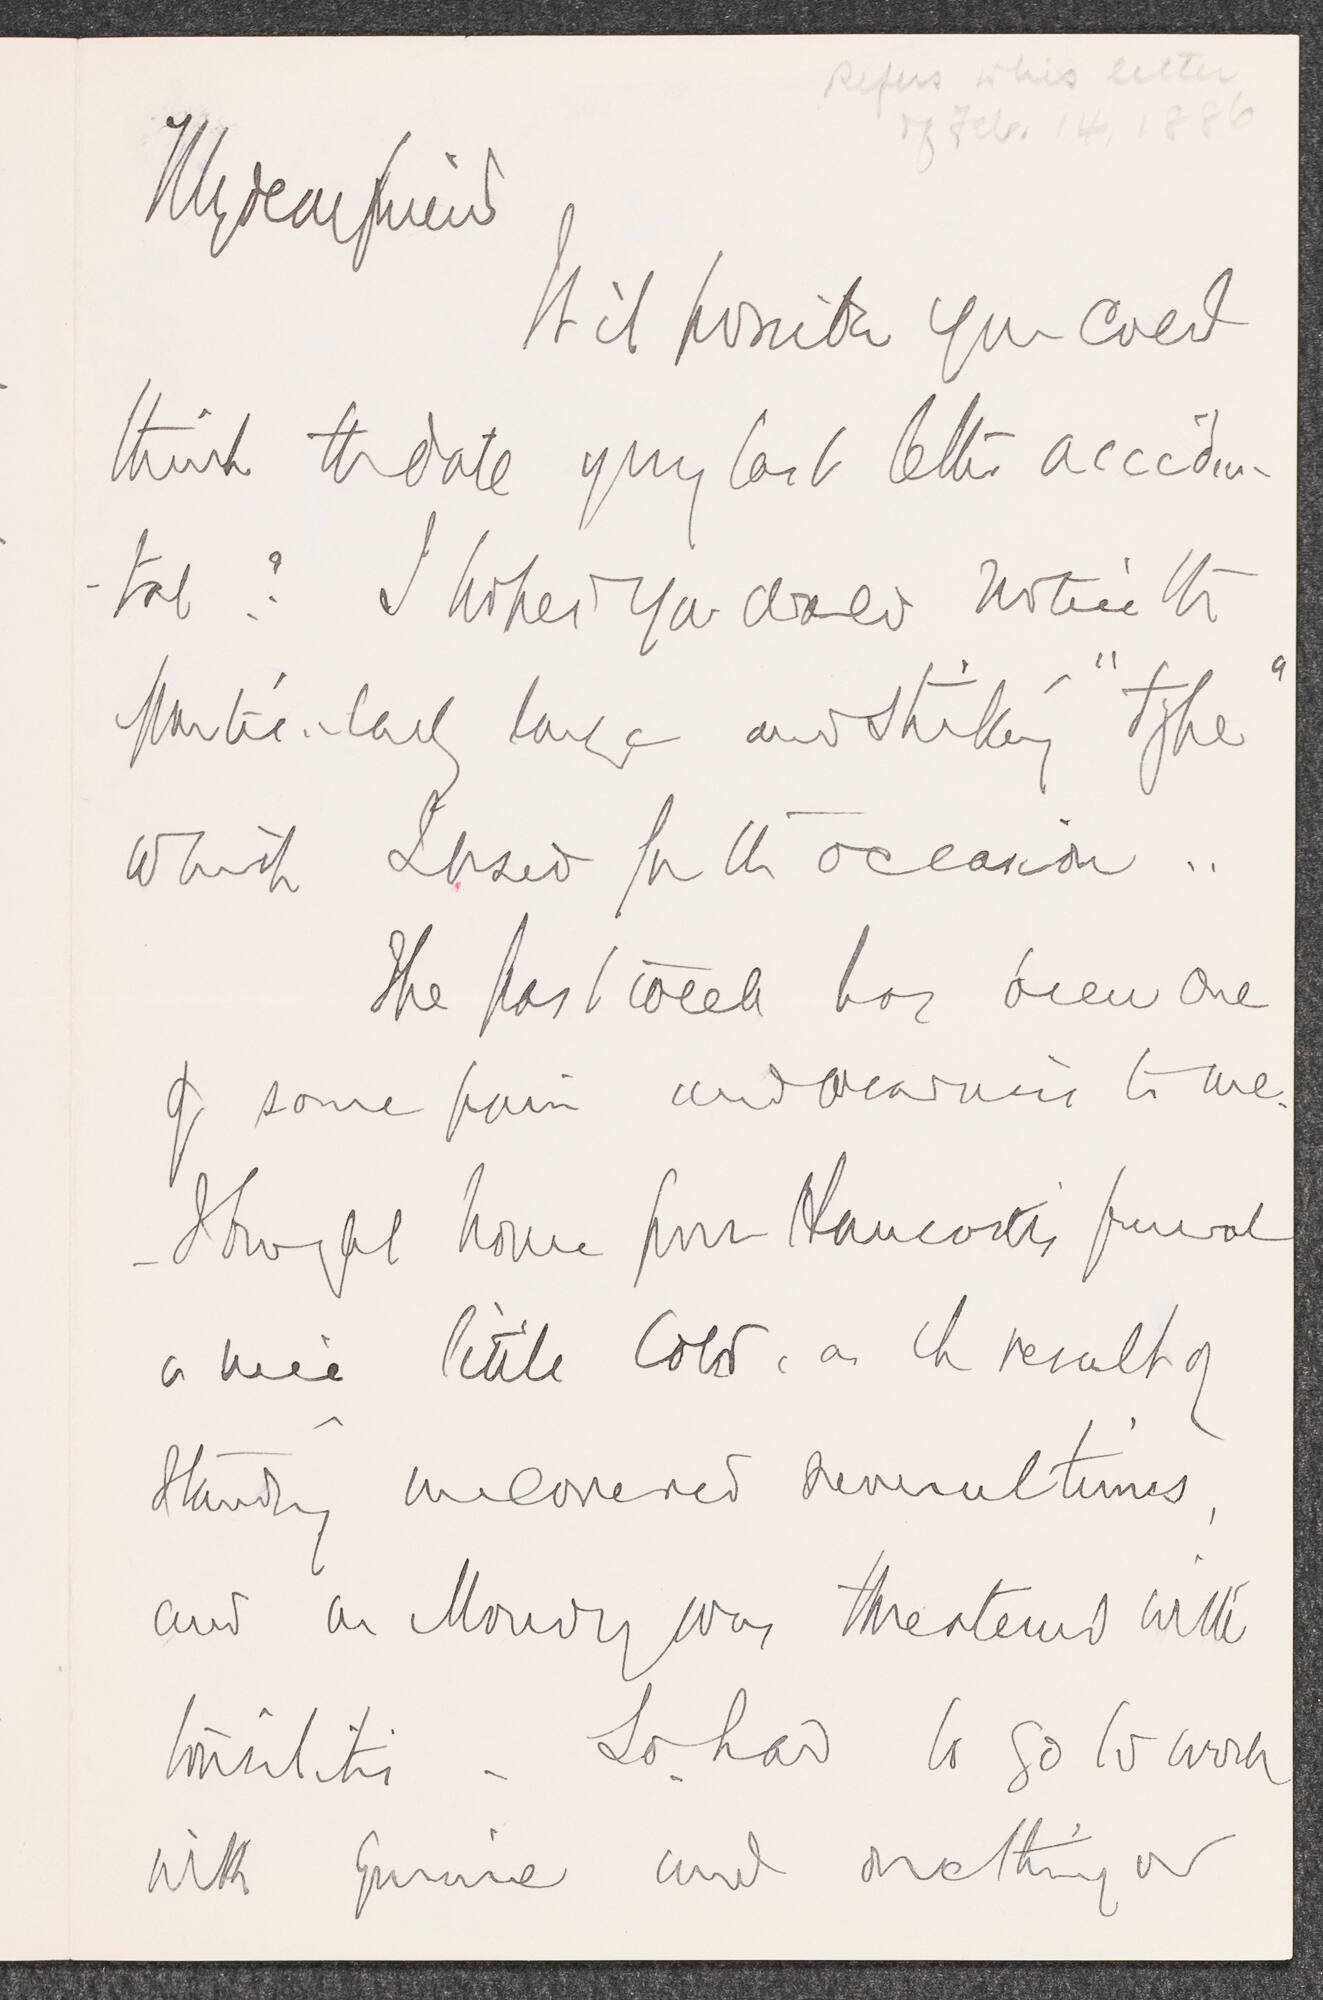 Refers to his letter
of Feb. 14, 1886
My dear friend
Is it possible you could
think the date of my last letter acciden-
-tal? I hoped you would notice the
particularly large and striking "type"
which I used for the occasion..
The past week has been one
of some pain and weariness to me.
- I brought home from Hancock's funeral
a nice little cold, as the result of
standing uncovered several times,
and on Monday was threatened with
tonsilitis - So had to go to work
with quinine and one thing or